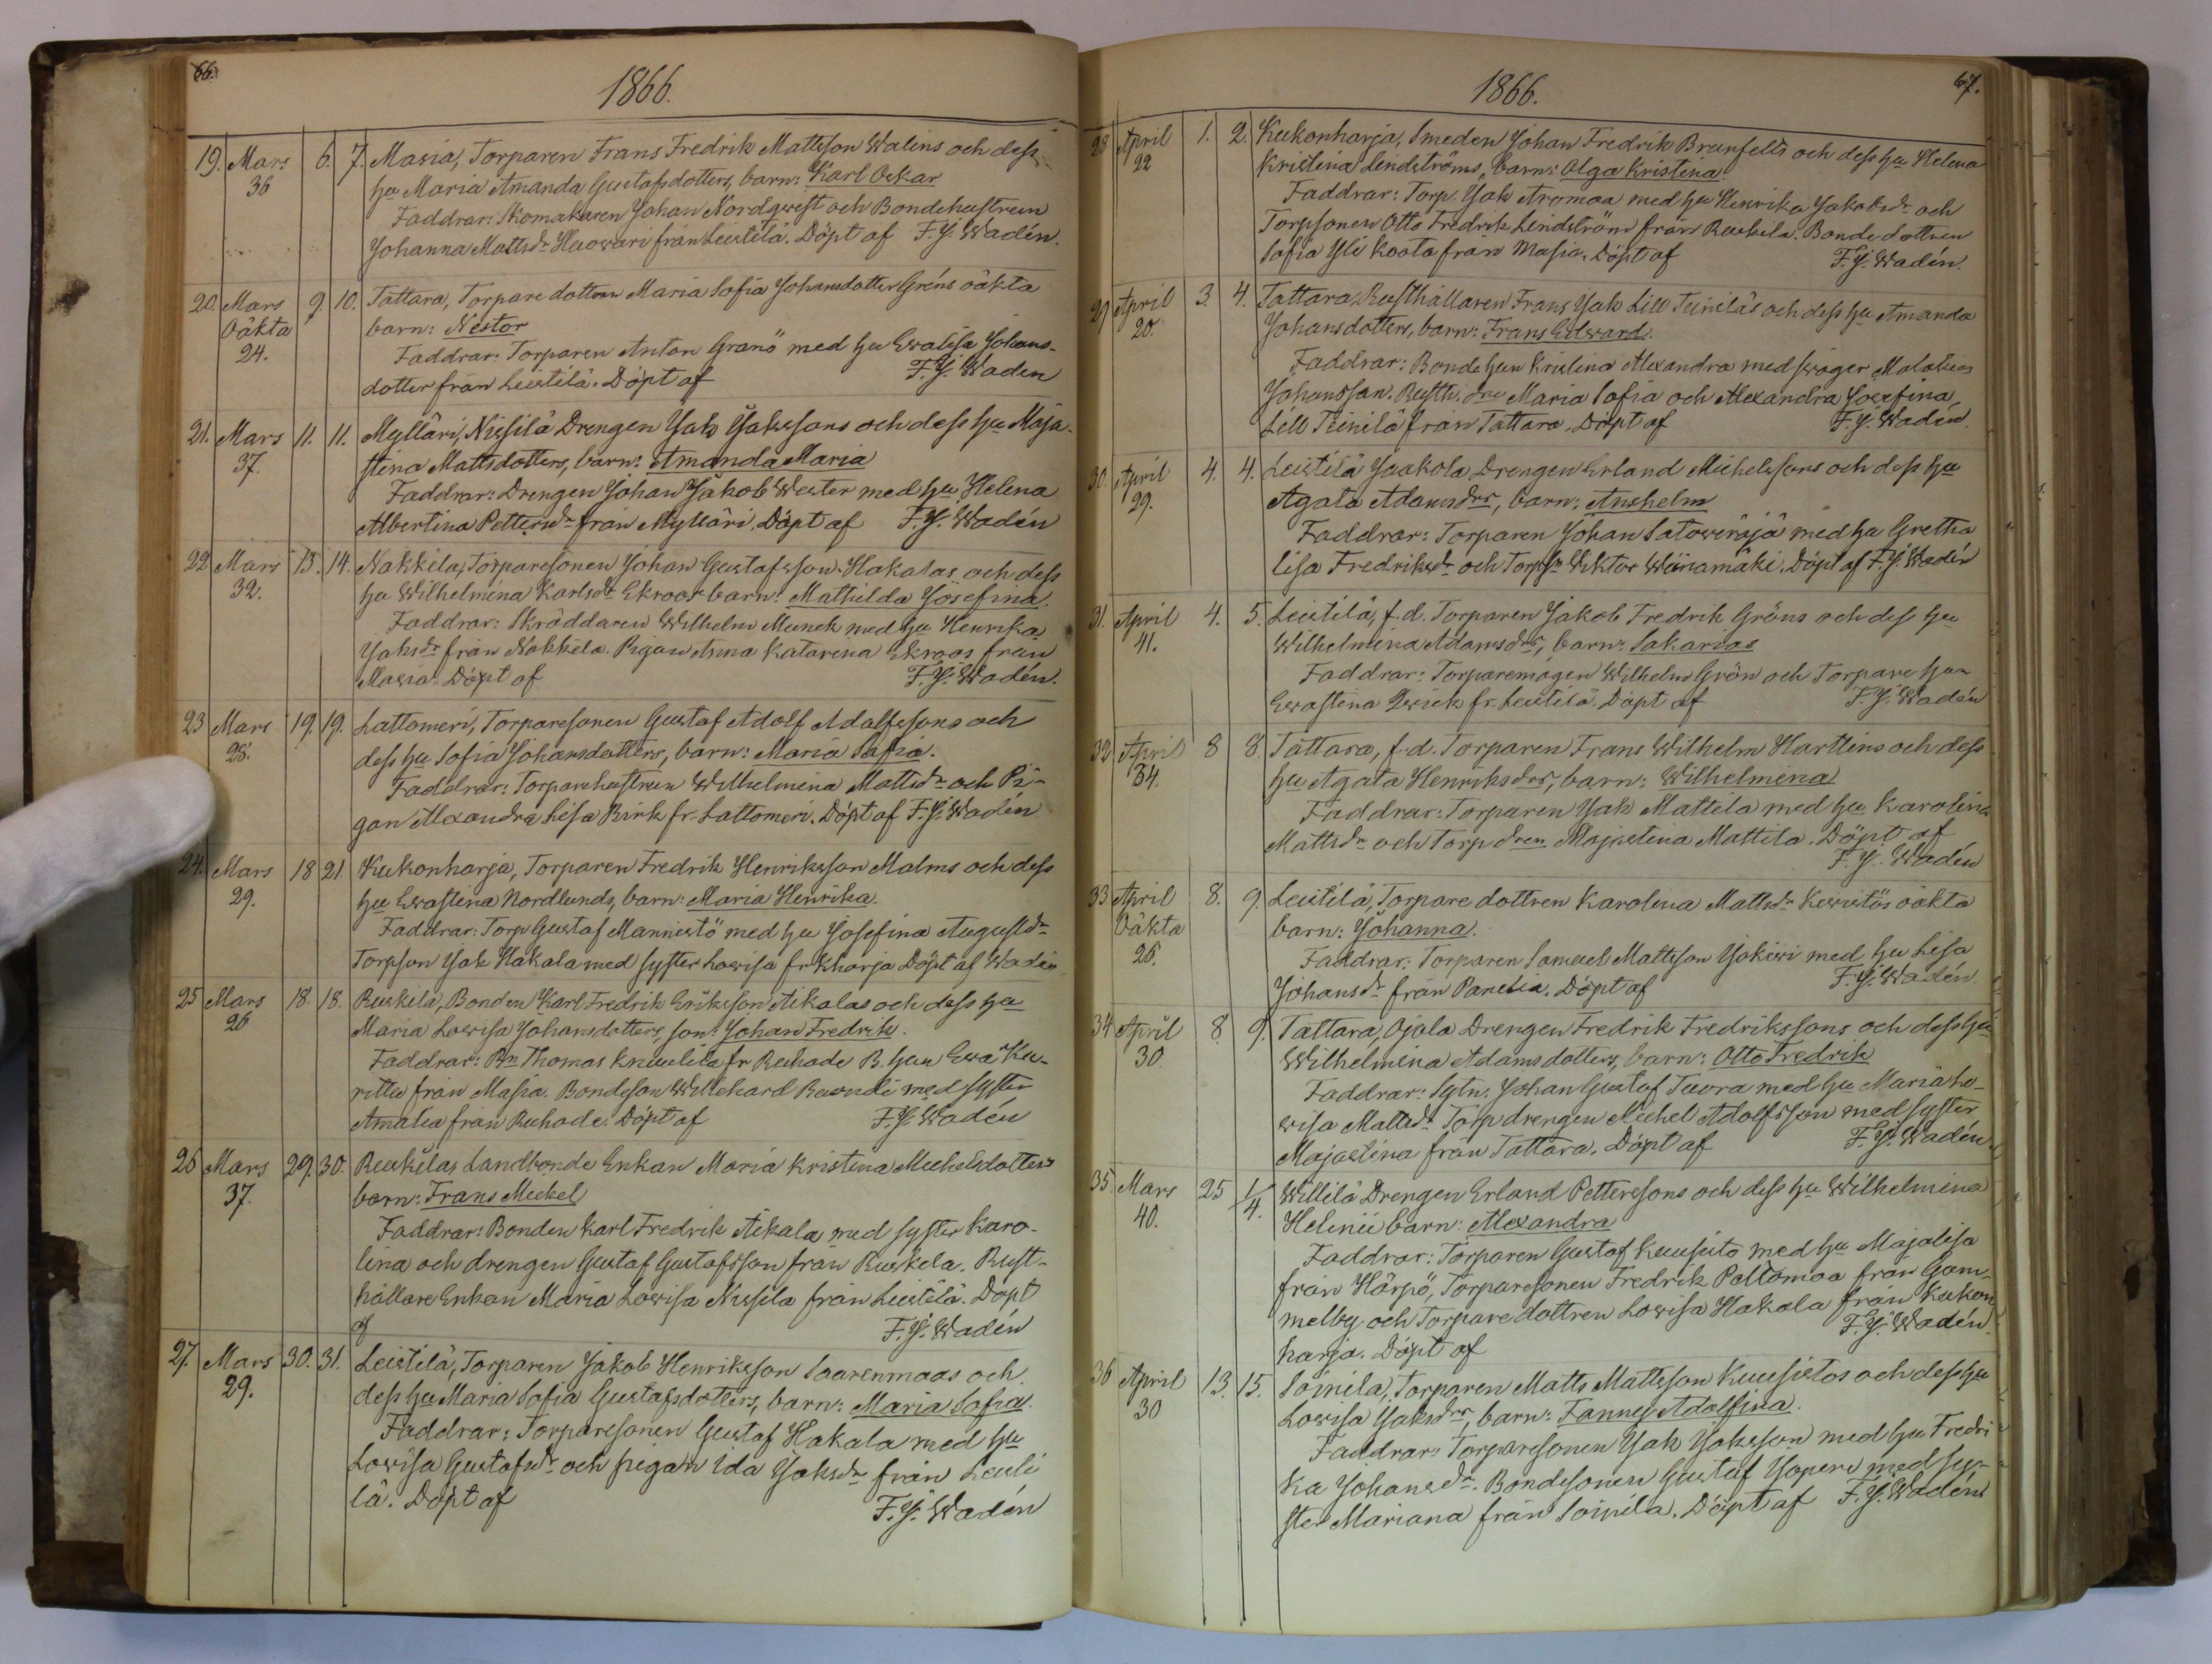 66.
1866.
19. Mars 6. 7. Masia, Torparen Frans Fredrik Mattsson Walins och dess
36 hu Maria Amanda Gustafsdotters, barn: Karl Oskar
Faddrar: Skomakaren Johan Nordqvist och Bondehustrun
Johanna Mattsdr Huowari från Leistilä. Döpt af F.J. Wadén.
20. Mars 9. 10. Tattara, Torpare dottren Maria Sofia Johansdotter Gréns oäkta
Oäkta barn: Nestor
24. Faddrar: Torparen Anton Granö med hu Evalisa Johans-
dotter från Leistilä. Döpt af F.J. Wadén
21. Mars 11. 11. Mylläri, Nissilä Drengen Jak Jakssons och dess hu Maja
37. stina Mattsdotters, barn: Amanda Maria
Faddrar: Drengen Johan Jakob Wester med hu Helena
Albertina Pettersdr från Mylläri. Döpt af F.J. Wadén
22. Mars 13. 14. Nakkila, Torparesonen Johan Gustafsson Hakalas och dess
32. hu Wilhelmina Karlsdr Ekroos barn: Mathilda Josefina.
Faddrar: Skräddaren Wilhelm Munck med hu Henrika
Jaksdr från Nakkila. Pigan Anna Katarina Ekroos från
Masia. Döpt af F.J. Wadén.
23 Mars 19. 19. Lattomeri, Torparesonen Gustaf Adolf Adolfssons och
28. dess hu Sofia Johansdotters, barn: Maria Sofia.
Faddrar: Torparehustrun Wilhelmina Mattsdr och Pi-
gan Alexandra Lisa Birk fr. Lattomeri. Döpt af F.J. Wadén
24. Mars 18 21. Kukonharja, Torparen Fredrik Henriksson Malms och dess
29. hu Evastina Nordlunds, barn: Maria Henrika.
Faddrar: Torp Gustaf Mannistö med hu Josefina Augustdr
Torpson Jak Hakala med syster Lowisa fr Kharja Döpt af Wadén
25 Mars 18. 18. Ruskila, Bonden Karl Fredrik Eriksson Aikalas och dess hu
26 Maria Lowisa Johansdotters, son: Johan Fredrik.
Faddrar: Bn Thomas Knuutila fr Ruhade B. hun Eva Ku-
rittu från Masia. Bondeson Willehard Ruondi med syster
Amalia från Ruhade. Döpt af F.J. Wadén
26 Mars 29. 30. Ruskilas Landbonde Enkan Maria Kristina Michelsdotters
37. barn: Frans Mickel
Faddrar: Bonden Karl Fredrik Aikala med syster Karo-
lina och drengen Gustaf Gustafsson från Ruskila. Rust-
hållare Enkan Maria Lowisa Nissilä från Leistilä. Döpt
af F.J. Wadén
27. Mars 30. 31. Leistilä, Torparen Jakob Henriksson Saarenmaas och
29. dess hu Maria Sofia Gustafsdotters, barn: Maria Sofia.
Faddrar: Torparesonen Gustaf Hakala med hu
Lowisa Gustafsdr och pigan Ida Jaksdr från Leisti
lä. Döpt af F.J. Wadén
67.
1866.
28 April 1. 2. Kukonharja, Smeden Johan Fredrik Brunfelts och dess hu Helena
22 Kristina Lindströms, barn: Olga Kristina.
Faddrar: Torp. Jak Aromaa med hu Henrika Jakobsdr och
Torpsonen Otto Fredrik Lindström från Ruskila. Bonde dottren
Sofia Yli Koota från Masia. Döpt af F.J. Wadén.
29 April 3. 4. Tattara, Rusthållaren Frans Jak Lill Teiniläs och dess hu Amanda
20. Johansdotters, barn: Frans Edward.
Faddrar: Bonde hun Kristina Alexandra med swåger Malakias
Johansson. Rusth. dne Maria Sofia och Alexandra Josefina
Lill Teinilä från Tattara. Döpt af F.J. Wadén.
30. April 4. 4. Leistilä Jaakola Drengen Erland Michelssons och dess hu
29. Agata Adamsdrs, barn: Anshelm
Faddrar: Torparen Johan Satoweräjä med hu Gretha
lisa Fredriksdr och Torpsn Wiktor Wiinamäki. Döpt af F.J. Wadén
31. April 4. 5. Leistilä, f.d. Torparen Jakob Fredrik Gröns och dess hu
41. Wilhelmina Adamsdrs, barn: Sakarias
Faddrar: Torparemågen Wilhelm Grön och Torpare hun
Evastina Qwick fr. Leistilä. Döpt af F.J. Wadén
32 April 8 8. Tattara, f.d. Torparen Frans Wilhelm Hartlins och dess
34. hu Agata Henriksdrs, barn: Wilhelmina
Faddrar: Torparen Jak Mattila med hu Karolina
Mattsdr och Torpdren Majastina Mattila. Döpt af
F.J. Wadén
33 April 8. 9. Leistilä, Torpare dottren Karolina Mattsdr Kuustös oäkta
Oäkta barn: Johanna.
26. Faddrar: Torparen Samuel Mattsson Jokiwi med hu Lisa
Johansdr från Panelia. Döpt af F.J. Wadén.
34 April 8. 9. Tattara, Ojala Drengen Fredrik Fredrikssons och dess hu
30. Wilhelmina Adamsdotters, barn: Otto Fredrik
Faddrar: Sytn. Johan Gustaf Tuora med hu Maria Lo-
wisa Mattsdr Torpdrengen Michel Adolfsson med syster
Majastina från Tattara. Döpt af F.J. Wadén.
35. Mars 25 1/4. Willilä Drengen Erland Petterssons och dess hu Wilhelmina
40. Helenii barn: Alexandra
Faddrar: Torparen Gustaf Kuusisto med hu Majalisa
från Hörpö, Torparesonen Fredrik Paltomaa från Gam-
melby och Torpare dottren Lowisa Hakala från Kukon
harja. Döpt af F.J. Wadén.
36 April 13. 15. Soinila, Torparen Matts Mattsson Kuusistos och dess hu
30 Lowisa Jaksdrs, barn: Fanny Adolfina.
Faddrar: Torparesonen Jak Jaksson med hu Fredri
ka Johansdr. Bondesonen Gustaf Yoperi med sy-
ster Mariana från Soinila. Döpt af F.J. Wadén